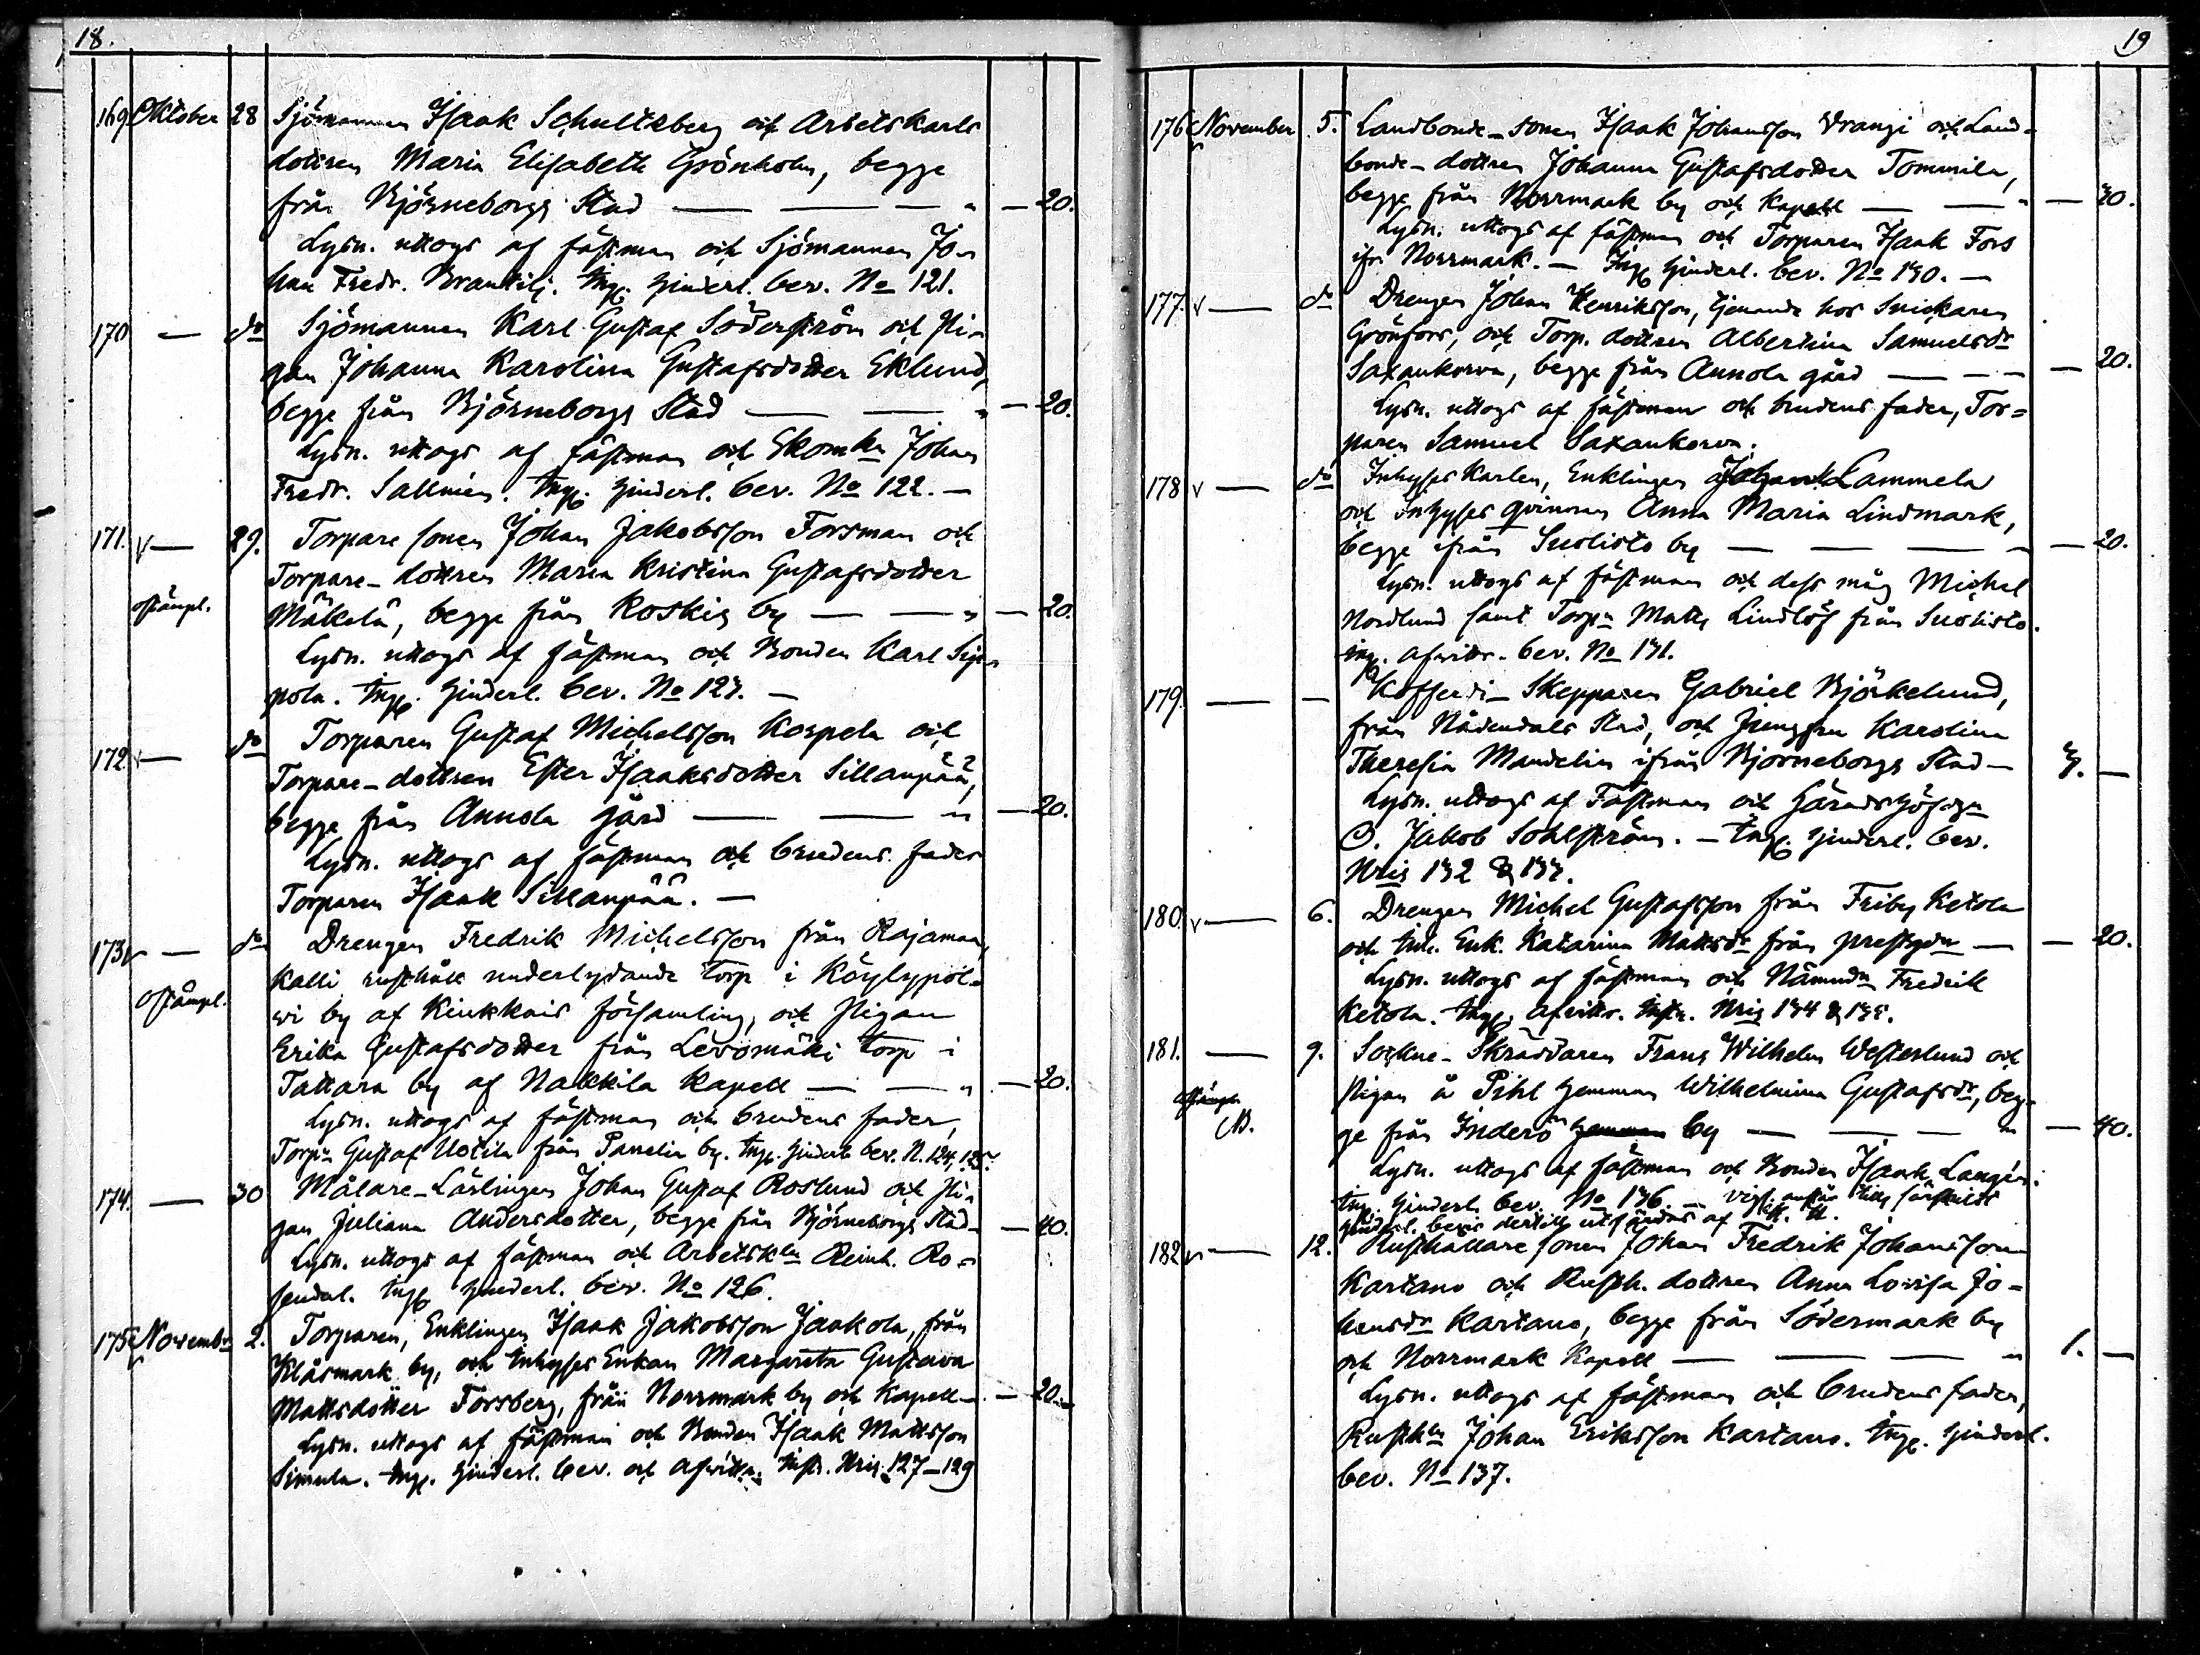 18.
169 Oktober 28 Sjömannen Isaak Schultzberg och Arbetskarls
dottren Maria Elisabeth Grönholm, begge
från Björneborgs Stad — — — " — 20.
Lysn. uttogs af fästman och Sjömannen Jo-
han Fredr. Brantilj. Ing. hinderl. bev. No 121.
170 — do Sjömannen Karl Gustaf Söderström och Pi-
gan Johanna Karolina Gustafsdotter Eklund,
begge från Björneborgs Stad — — " — 20.
Lysn. uttogs af fästman och Ekomkn Johan
Fredr. Sallmén. Ing. hinderl. bev. No 122. —
171. v — 29. Torpare sonen Johan Jakobsson Forsman och
Torpare-dottren Maria Kristina Gustafsdotter
ostämpl. Mäkelä, begge från Koskis by — — " — 20.
Lysn. uttogs af fästman och Bonden Karl Sip-
pola. Ing. hinderl. bev. No 123. —
172 v — do Torparen Gustaf Michelsson Korpela och
Torpare-dottren Ester Isaaksdotter Sillanpää,
begge från Annola gård — — " — 20.
Lysn. uttogs af fästman och brudens fader
Torparen Isaak Sillanpää. —
173 v — do Drengen Fredrik Michelsson från Rajaman,
Kalli rusthåll underlydande torp i Köylypol-
ostämpl. wi by af Kiukkais församling, och Pigan
Erika Gustafsdotter från Levomäki torp i
Tattara by af Nakkila Kapell — — " — 20.
Lysn. uttogs af fästman och brudens fader,
Torpn Gustaf Uotila från Panelia by. Ing. hinderl. bev. N. 124, 125.
174. — 30 Målare-Lärlingen Johan Gustaf Roslund och Pi-
gan Juliana Andersdotter, begge från Björneborgs Stad — 40.
Lysn. uttogs af fästman och Arbetskln Reinh. Ro-
sendal. Ing. hinderl. bev. No 126.
175 v Novembr 2. Torparen, Enklingen Isaak Jakobsson Jaakola, från
Klåsmark by, och Inhyses Enkan Margareta Gustava
Mattsdotter Forsberg, från Norrmark by och Kapell — — 20.
Lysn. uttogs af fästman och Bonden Isaak Mattsson
Simula. Ing. hinderl. bev. och afvittr. Instr. Nris 127–129
19
176 v November 5. Landbonde-sonen Isaak Johansson Vrangi och Land-
bonde-dottren Johanna Gustafsdotter Tommila,
begge från Norrmark by och Kapell — — " — 20.
Lysn. uttogs af fästman och Torparen Isaak Fors
ifr. Norrmark. — Ing. hinderl. bev. No 130. —
177. v — do Drengen Johan Henriksson, tjenande hos Snickaren
Grönfors, och Torp. dottren Albertina Samuelsdr
Saxankorva, begge från Annola gård — — — 20.
Lysn. uttogs af fästman och brudens fader, Tor-
paren Samuel Saxankorva.
178 v — do Inhyses Karlen, Enklingen Johan Lammela
och Inhyses qvinnan Anna Maria Lindmark,
begge ifrån Suolisto by — — — " — 20.
Lysn. uttogs af fästman och dess måg Michel
Nordlund samt Torpn Matts Lindlöf från Suolisto.
ing. afvittr. bev. No 131.
179. — — Kofferdi-Skepparen Gabriel Björkelund,
från Nådendals Stad, och Jungfru Karolina
Theresia Mandelin ifrån Björneborgs Stad — 3. —
Lysn. uttogs af Fästman och Häradshöfdgn
O. Jakob Sohlström. — Ing. hinderl. bev.
Nris 132 & 133.
180 v — 6. Drengen Michel Gustafsson från Friby Ketola
och Inh. Enk. Katarina Mattsdr från prestgdn — — 20.
Lysn. uttogs af fästman och Nämndn Fredrik
Ketola. Ing. afvittr. Instr. Nris 134 & 135.
181. — 9. Sockne-Skräddaren Frans Wilhelm Westerlund och
Pigan å Pihl hemman Wilhelmina Gustafsdr, beg-
NB. ge från Inderö hemman by — — — " — 40.
Lysn. uttogs af fästman och Bonden Isaak Langén.
Ing. hinderl. bev. No 136 — Vigs. anstår tills särskildt
hinderl. bevis dertill utfärdas af
182 v — 12. Rusthållare sonen Johan Fredrik Johansson
Kartano och Rusth. dottren Anna Lovisa Jo-
hansdr Kartano, begge från Södermark by
och Norrmark Kapell — — — " 1. —
Lysn. uttogs af fästman och brudens fader,
Rusthln Johan Eriksson Kartano. Ing. hinderl.
bev. No 137.